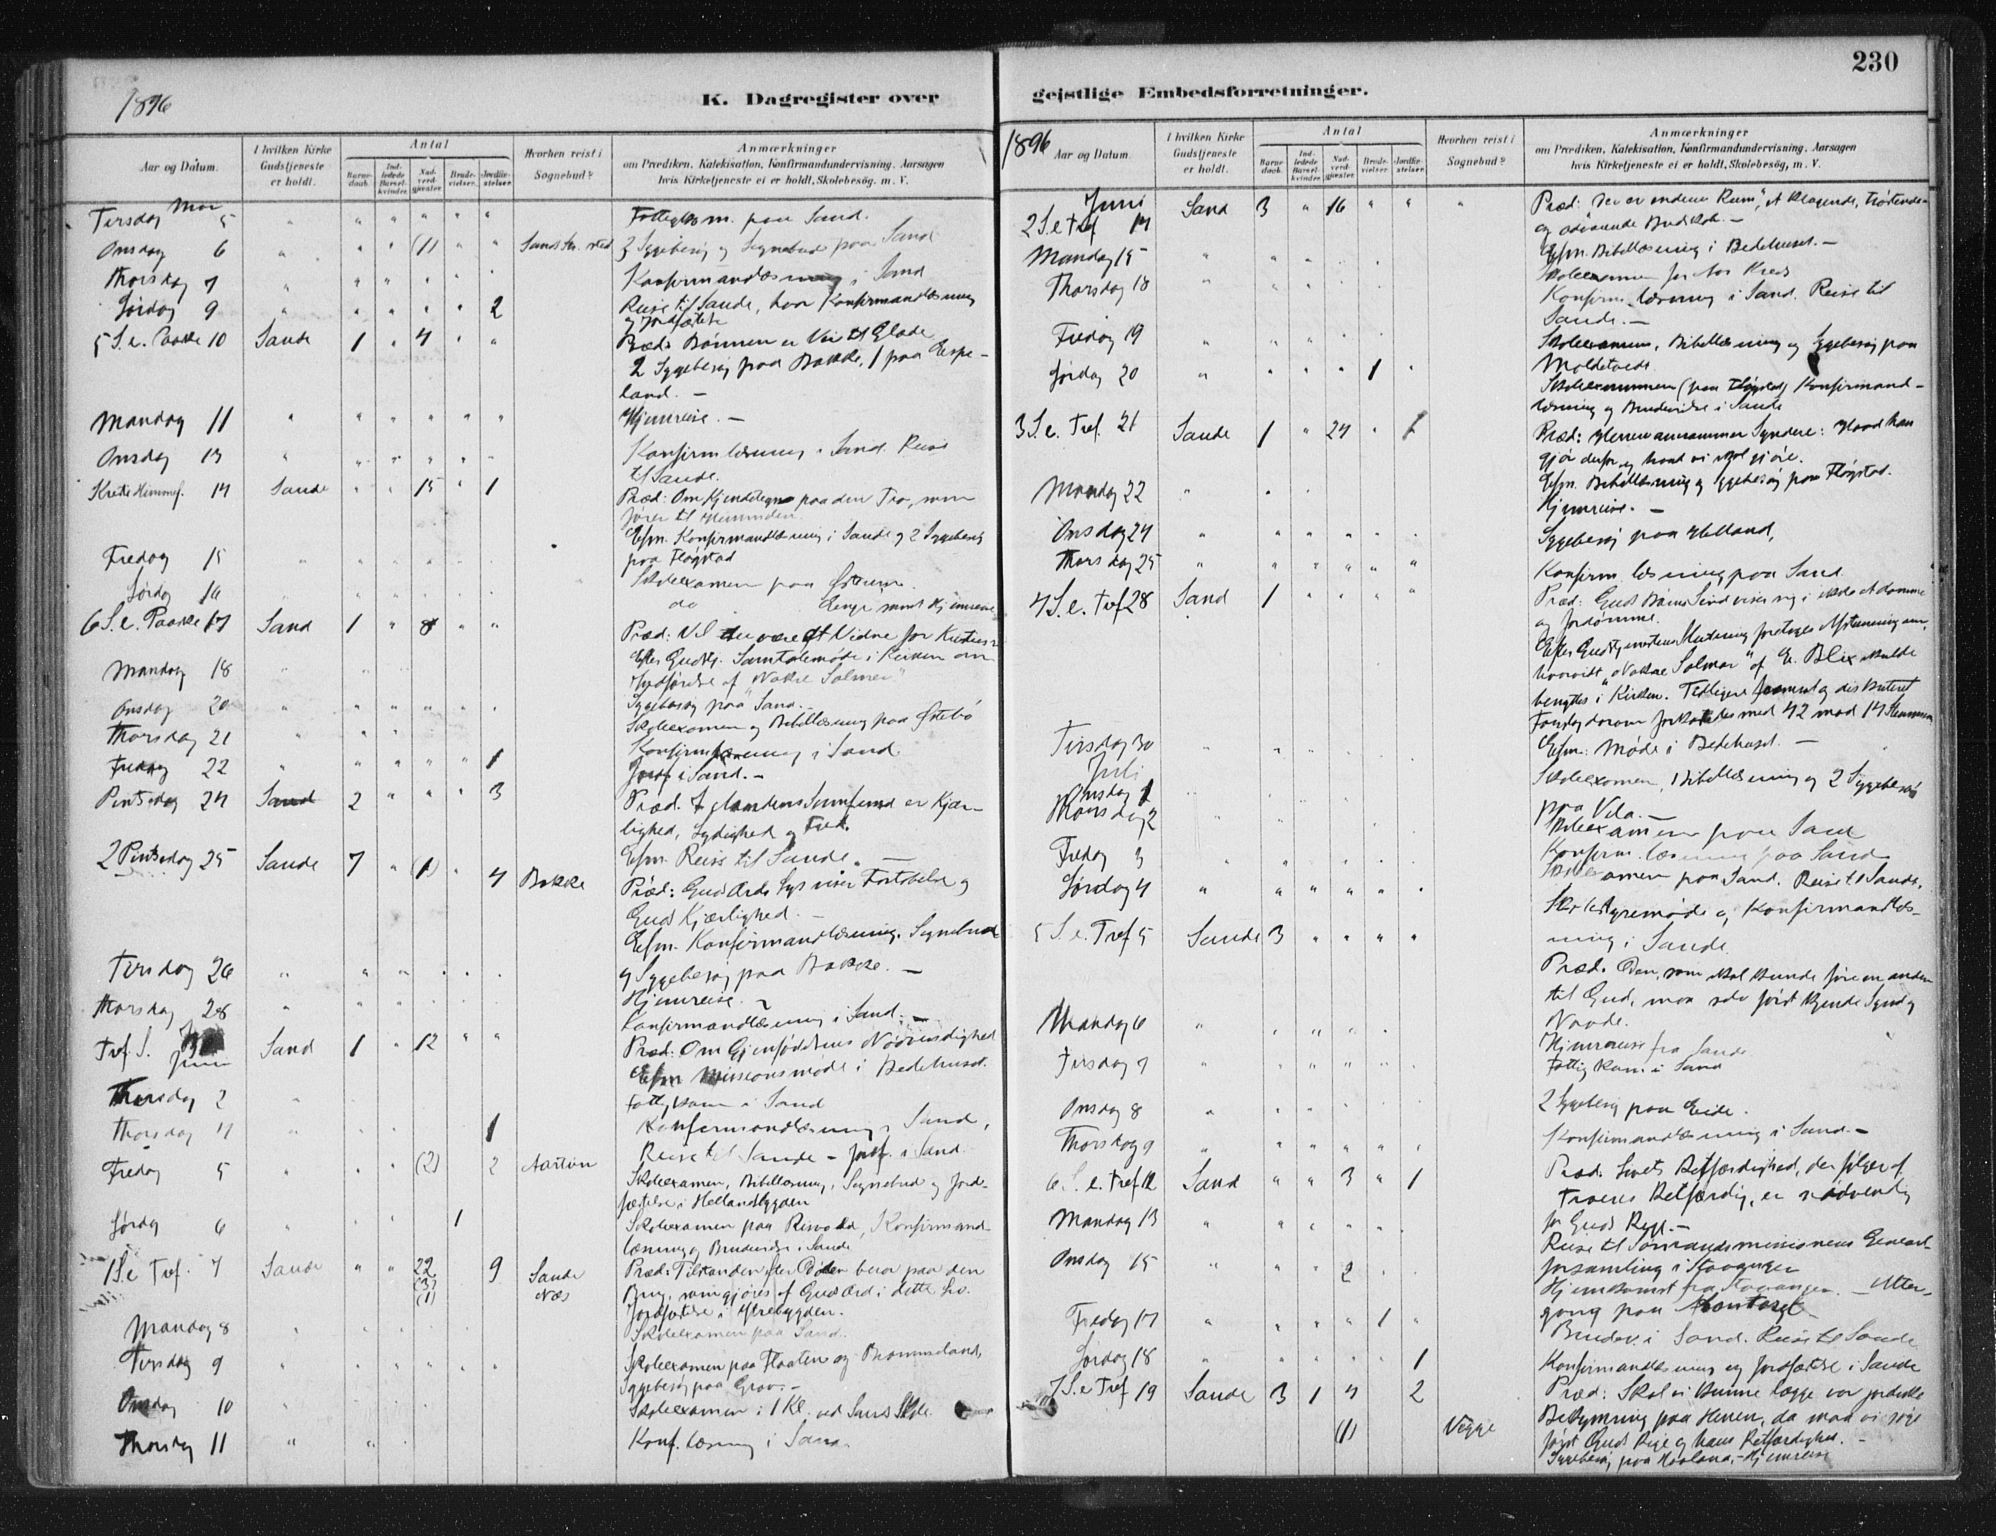 1896
K. Dagregister over
Aar og Datum.
I hvilken Kirke Gudstjeneste er holdt.
Antal
Barnedaab.
Indledede Barselkvinder.
Nadverdgjæster.
Brudevielser.
Jordfæstelser.
Hvorhen reist i Sognebud?
Anmærkninger
om Prædiken, Katekisation, Konfirmandundervisning, Aarsagen
hvis Kirketjeneste ei er holdt, Skolebesög, m. V.
Mai
Tirsdag 5 Fattigkom. paa Sand.
Onsdag 6 (1) Sygebesøg og Sognebud paa Sand
Thorsdag 7 Konfirmandlæsning i Sand
Lørdag 9 2 Reise til Sande, hvor Konfirmandlæsning
og Jordfæstelse
5 S. e. Paaske 10 Sande 1 4 Præd: Bønnen er Vei til Glæde
2 Sygebesøg paa Bakke, 1 paa Espe-
land. -
Mandag 11 Hjemreise. -
Onsdag 13 Konfirm læsning i Sand. Reise
til Sande.
Kristi Himmelf. 14 Sande 15 1 Præd: Om Kjendetegn paa den Tro, som
fører til Himmelen
Efm. Konfirmandlæsning i Sande og 2 Sygebesøg
paa Fløgstad
Fredag 15 Skoleexamen paa
Lørdag 16 do samt Hjemreise
6 S. e. Paaske 17 Sand 1 8 Præd: Vil du være et Vidne for Kristus?
Efter Gudstj. Samtalemøde i Kirken om
Indførelse af "Nokre Salmer"
Mandag 18 Sygebesøg paa Sand. -
Onsdag 20 Skoleexamen og Bibellæsning paa Østebø
Thorsdag 21 Konfirmlæsning i Sand.
Fredag 22 1 Jordf i Sand. -
Pintsedag 24 Sand 2 3 Præd. Samfund er Kjær-
lighed, Lydighed og Fred.
Efm. Reise til Sande. -
2 Pintsedag 25 Sande 7 (1) 4 Bakke Præd: Guds Ords Lys viser Fortabelse og
Guds Kjærlighed. -
Efm. Konfirmandlæsning. Sognebud
og Sygebesøg paa Bakke. -
Tirsdag 26 Hjemreise.
Thorsdag 28 Konfirmandlæsning i Sand. -
Tref. S. Sand 1 12 Præd: Om Gjenfødelsens Nødvendighed
Efm Missionsmøde i Bedehuset.
Juni
2 Fattigkom i Sand
Thorsdag 4 1 Konfirmandlæsning i Sand,
Reise til Sande - Jordf. i Sand.
Fredag 5 (2) 2 Skoleexamen, Bibellæsning, Sognebud og Jord-
fæstelse i Hellandsbygden
Lørdag 6 1 Skoleexamen paa Risvold, Konfirmand
læsning og Brudevielse i Sande
1 S. e Tref. 7 Sande 22 (3) (1) 9 Sande Næs Præd: Tilstanden efter Døden beror paa den
Brug, som gjøres af Guds Ord i dette Liv.
Jordfæstelse i
Mandag 8 Skoleexamen paa Sand.
Tirsdag 9 Skoleexamen paa Flaaten og Brommeland,
Sygebesøg paa
Onsdag 10 Skoleexamen i 1 Kl. ved Sands Skole.
Thorsdag 11 Konf. læsning i Sand.
230
geistlige Embedsforretninger.
1896
Aar og Datum.
I hvilken Kirke Gudstjeneste er holdt.
Antal
Barnedaab.
Indledede Barselkvinder.
Nadverdgjæster.
Brudevielser.
Jordfæstelser.
Hvorhen reist i Sognebud?
Anmærkninger
om Prædiken, Katekisation, Konfirmandundervisning, Aarsagen
hvis Kirketjeneste ei er holdt, Skolebesög, m. V.
Juni
2 S. e Tref 14 Sand 3 16 Præd: "Der er endnu Rum", et klagende, trøstende
og advarende Budskab. -
Efm. Bibellæsning i Bedehuset. -
Mandag 15 Skoleexamen for Kreds
Thorsdag 18 Konfirm. læsning i Sand. Reise til
Sande. -
Fredag 19 Skoleexamen, Bibellæsning og Sygebesøg paa
Lørdag 20 1 Skoleexamen (paa Fløgstad) Konfirmand-
læsning og Brudevielse i Sande
3 S. e. Tref. 21 Sande 1 24 1 Præd: Herren annammer Syndere: Hvad han
gjør derfor og hvad vi skal gjøre.
Efm. Bibellæsning og Sygebesøg paa Fløgstad.
Mandag 22 Hjemreise. -
Onsdag 24 Sygebesøg paa Helland,
Thorsdag 25 Konfirm. læsning paa Sand
4 S. e. Tref 28 Sand 1 Præd: Guds Børns Sind viser sig i ikke at dømme
og fordømme.
Efter Gudstjenestens Slutning foretoges Afstemning om,
hvorvidt "Nokre Salmar" af E. Blix skulde
benyttes i Kirken.
Forslag derom forkastedes med 42 mod 14 Stemmer
Efm: Møde i Bedehuset. -
Tirsdag 30 Skoleexamen, Bibellæsning og 2 Sygebesøg
paa Vela. -
Juli
Onsdag 1 Skoleexamen paa Sand
Thorsdag 2 Konfirm. læsning paa Sand
Fredag 3 Skoleexamen paa Sand. Reise til Sande.
Lørdag 4 Skolestyremøde og Konfirmandlæs-
ning i Sande
5 S. e. Tref 5 Sande 3 Præd. Den, som skal kunne føre en anden
til Gud, maa selv først kjende Synd og
Naade.
Mandag 6 Hjemreise fra Sande
Tirsdag 7 Fattigkom. i Sand
Onsdag 8 2 Sygebesøg paa Eide.
Thorsdag 9 Konfirmandlæsning i Sand. -
6 S. e. Tref 12 Sand 3 1 Præd. Livets Retfærdighed, der følger af
Troens Retfærdig, er nødvendig
for Guds Rige. -
Mandag 13 Reise til Sømandsmissionens General-
forsamling i Stavanger
Onsdag 15 2 Hjemkomst fra Stavanger. - Alter-
gang paa Kontoret
Fredag 17 1 Brudev. i Sand. Reise til Sande
Lørdag 18 1 Konfirmandlæsning og Jordfæstelse i Sande
7 S. e Tref 19 Sande 3 1 4 2 Præd: Skal vi kunne lægge vor jordiske
(1) Vegge Bekymring paa Herren, da maa vi søge
først Guds Rige og hans Retfærdighed. -
Sygebesøg paa Hjemreise